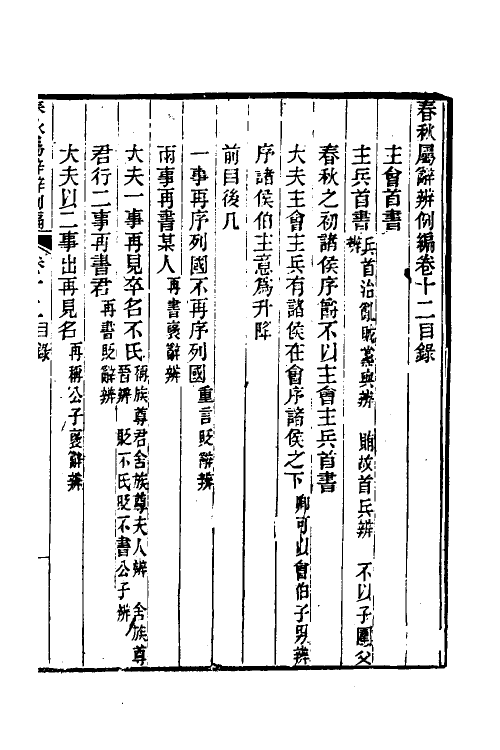 春秋屬辭辨例編卷十二目錄
主會首書
主兵首書 兵首治亂貶纂與辨 賄故首兵辨 不以子圍父辨
春秋之初諸侯序爵不以主會主兵首書
大夫主會主兵有諸侯在會序諸侯之下 卿可以會伯子男辨
序諸侯伯主意爲升降
前目後凡
一事再序列國不再序列國 重言貶辭辨
兩事再書某人 再書襃辭辨
大夫一事再見卒名不氏 稱族尊君舍族尊夫人辨 舍族尊晉辨 貶不氏貶不書公子辨
君行二事再書君 再書貶辭辨
大夫以二事出再見名 再稱公子襃辭辨
春秋屬辭辨例編 卷十二目錄 一